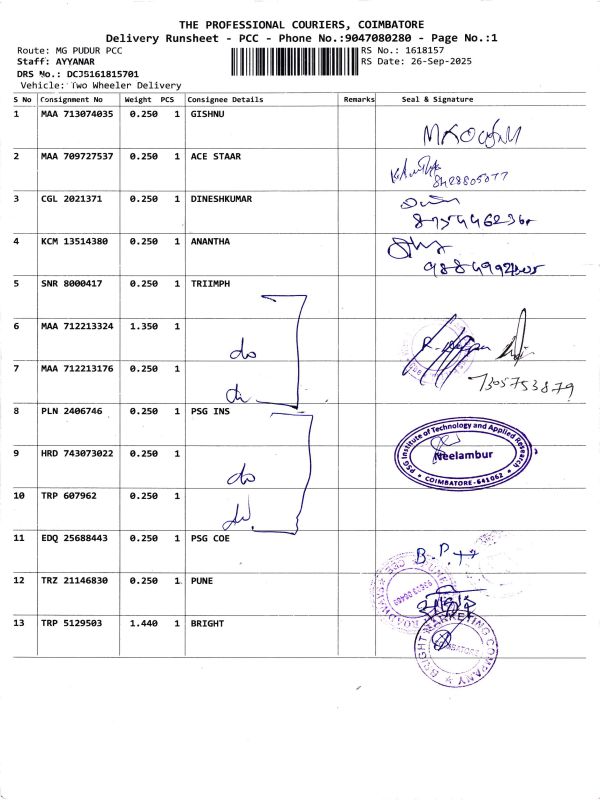 THE PROFESSIONAL COURIERS, COIMBATORE
Delivery Runsheet - PCC - Phone No.:9047080280 - Page No.:1
Route: MG PUDUR PCC
RS No.: 1618157
Staff: AYYANAR
RS Date: 26-Sep-2025
DRS No.: DCJ5161815701
Vehicle: Two Wheeler Delivery
S No Consignment No Weight PCS Consignee Details Remarks Seal & Signature
1 MAA 713074035 0.250 1 GISHNU
2 MAA 709727537 0.250 1 ACE STAAR
3 CGL 2021371 0.250 1 DINESHKUMAR
4 KCM 13514380 0.250 1 ANANTHA
5 SNR 8000417 0.250 1 TRIIMPH
6 MAA 712213324 1.350 1
do
7 MAA 712213176 0.250 1
7305753879
8 PLN 2406746 0.250 1 PSG INS
PSG Institute of Technology and Applied Research
Neelambur
COIMBATORE-641062
9 HRD 743073022 0.250 1
do
10 TRP 607962 0.250 1
11 EDQ 25688443 0.250 1 PSG COE
12 TRZ 21146830 0.250 1 PUNE
13 TRP 5129503 1.440 1 BRIGHT
BRIGHT MARKETING COMPANY